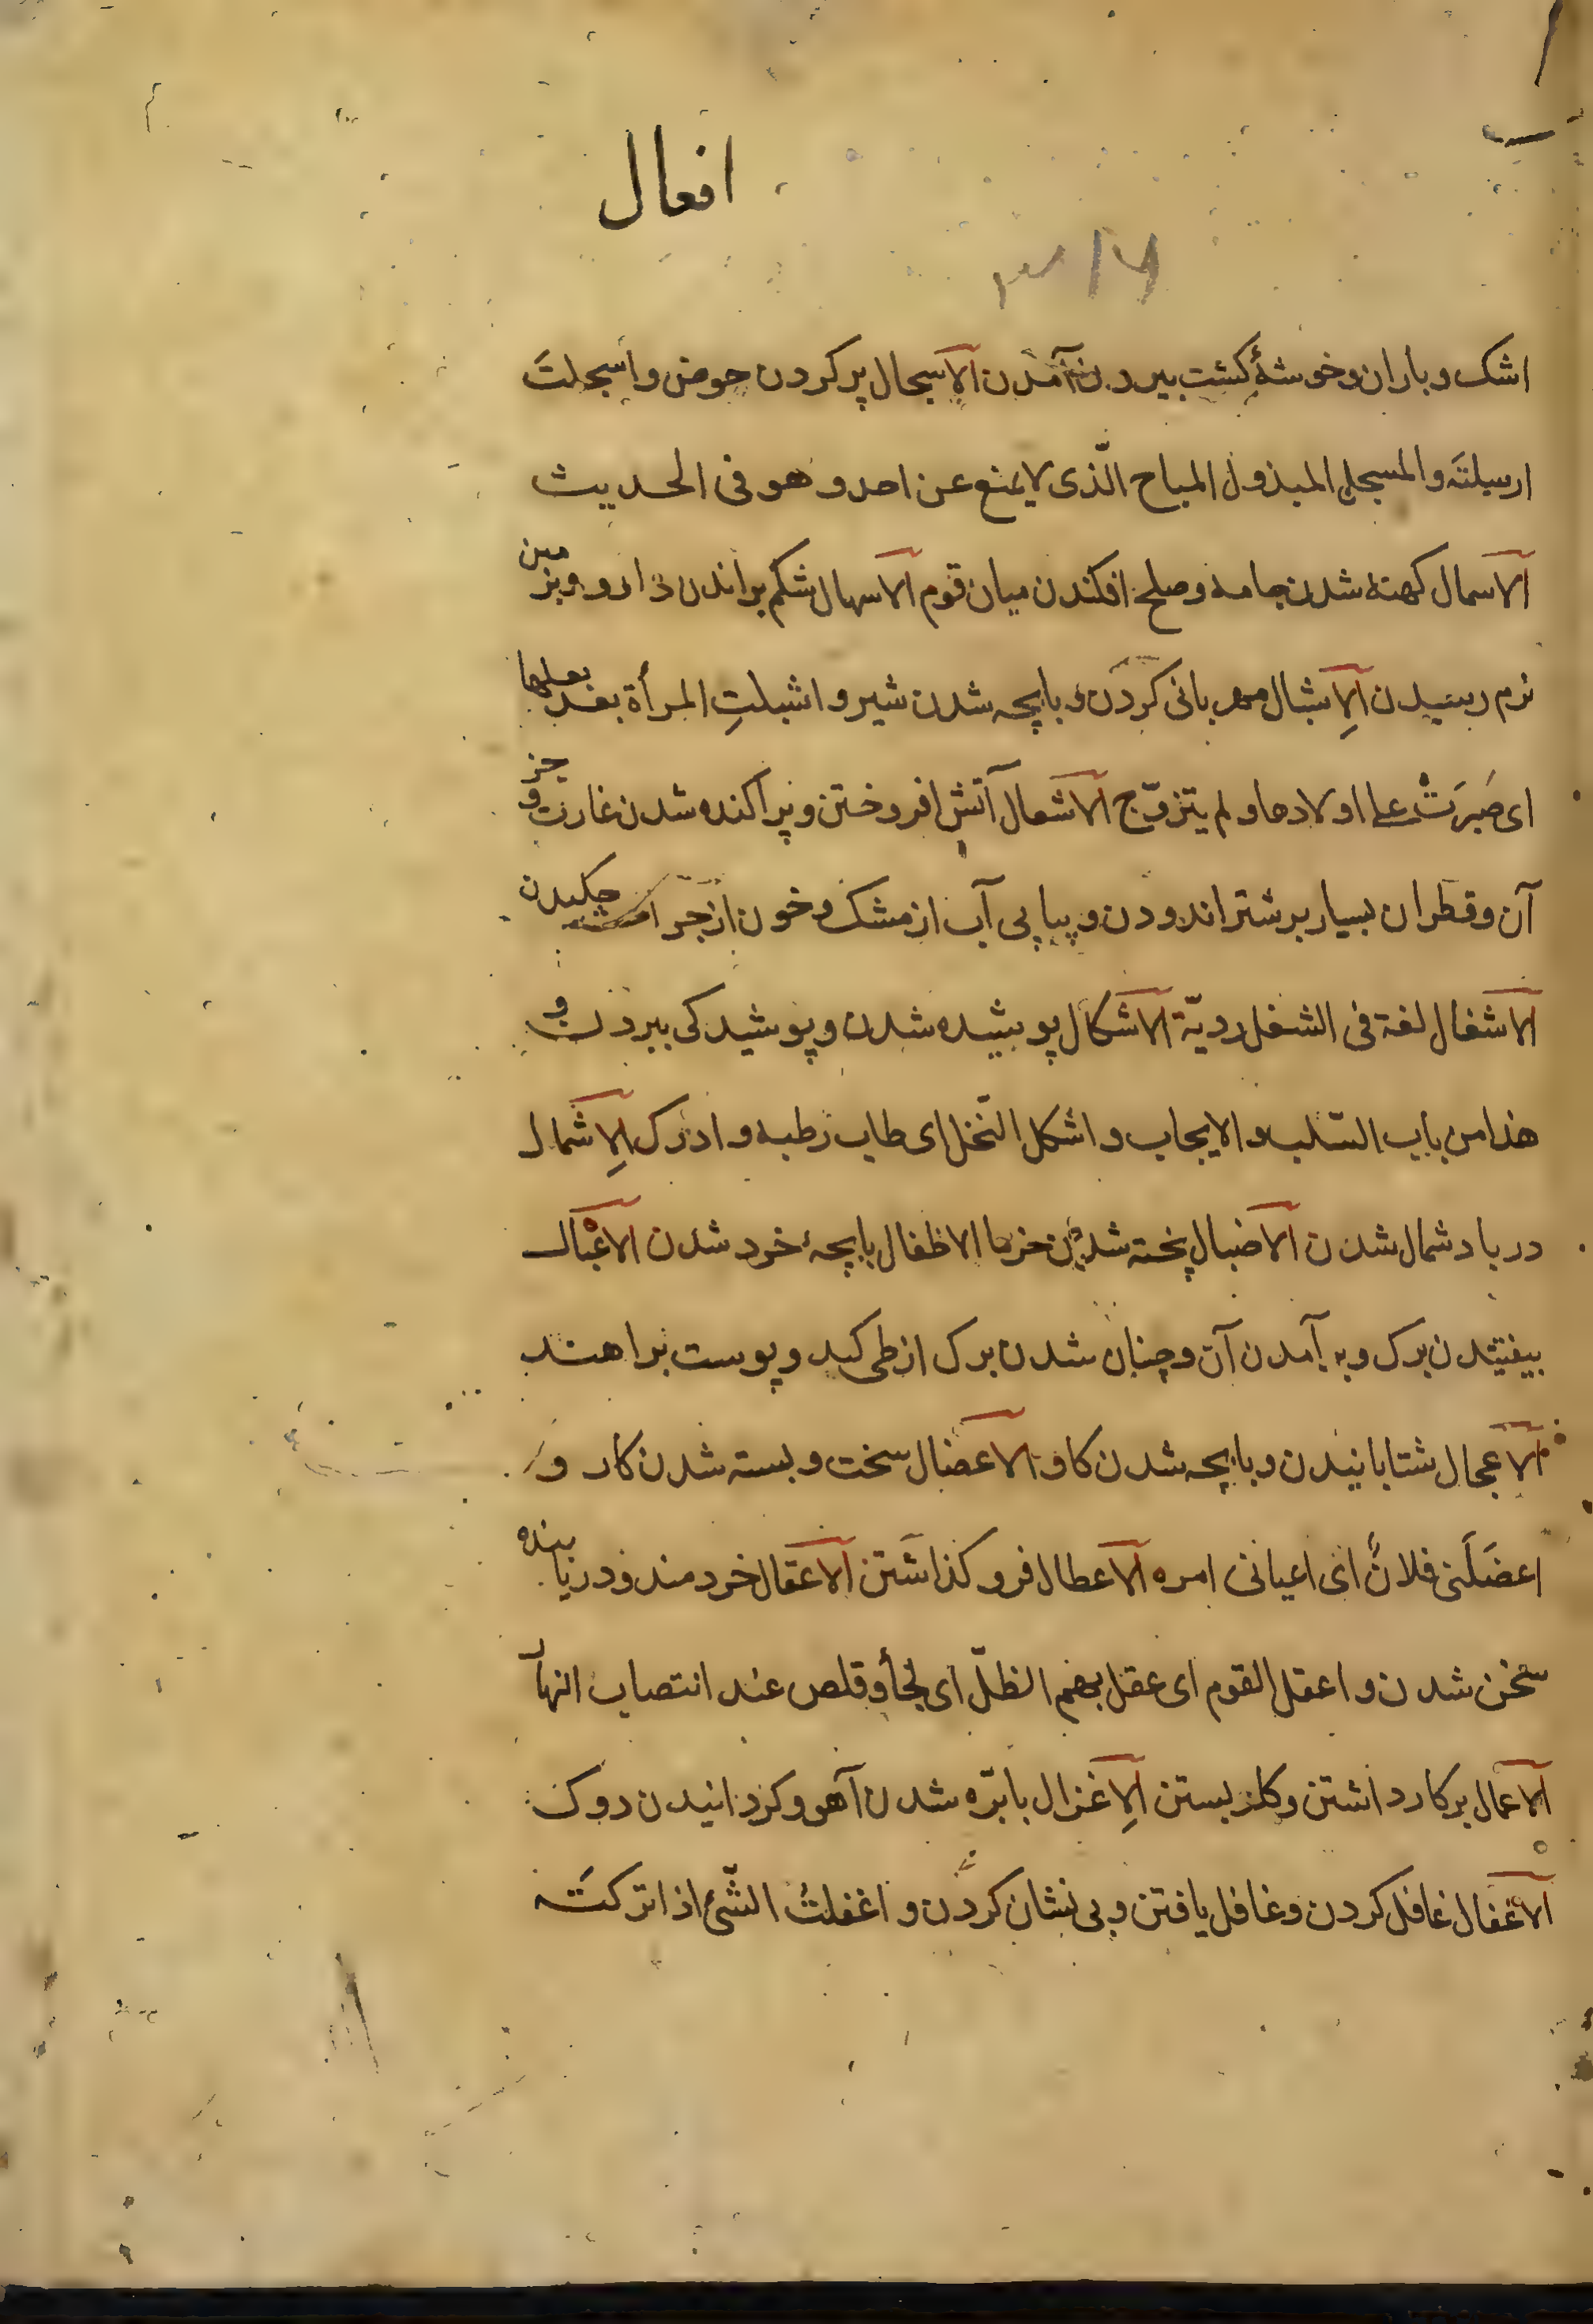 افعال
۳۱۷
اشک و باران و خوشهٔ کشت بیرون آمدن الاسجال پر کردن حوض و اسجلت
ارسلته و المسجل المبذول المباح الّذی لا یمنع عن احد و هو فی الحدیث
الاسمال کهنه شدن جامه و صلح افکندن میان قوم الاسهال شکم براندن دارو و بزمین
نرم رسیدن الاِشبال مهربانی کردن و بابچه شدن شیر و اشبلتِ المرأة بعد بعلها
ای صَبَرَتْ علی اولادها و لم یتزوّج الاشعال آتش افروختن و پراکنده شدن غارت و جز
آن و قطران بسیار بر شتر اندودن و پیاپی آب از مشک و خون از جراحت چکیدن
الاشغال لغة فی الشغل ردیّة الاشکال پوشیده شدن و پوشیدکی ببردن و
هذا من باب السّلب و الایجاب و اشکل النّخل ای طاب رطبه و ادرک الاِشمال
در باد شمال شدن الاضبال پخته شدن خرما الاظفال بابچهٔ خرد شدن الاعْبال
بیفتیدن برک و بر آمدن آن و چنان شدن برک ازطی کند و پوست براهند
الاعجال شتابانیدن و بابچه شدن کاو الاعضال سخت و بسته شدن کار و
اعضَلَنی فلانٌ ای اعیانی امره الاعطال فرو کذاشتن الاعقال خردمند و دریابنده
سخن شدن و اعقل القوم ای عقل بهم الظلّ ای لجأ و قلص عند انتصاب النهار
الاعمال بر کار داشتن و کار بستن الاِغزال با برّه شدن آهو و کردانیدن دوک
الاغفال غافل کردن و غافل یافتن و بی نشان کردن و اغفلتُ الشّئ اذا ترکتَه